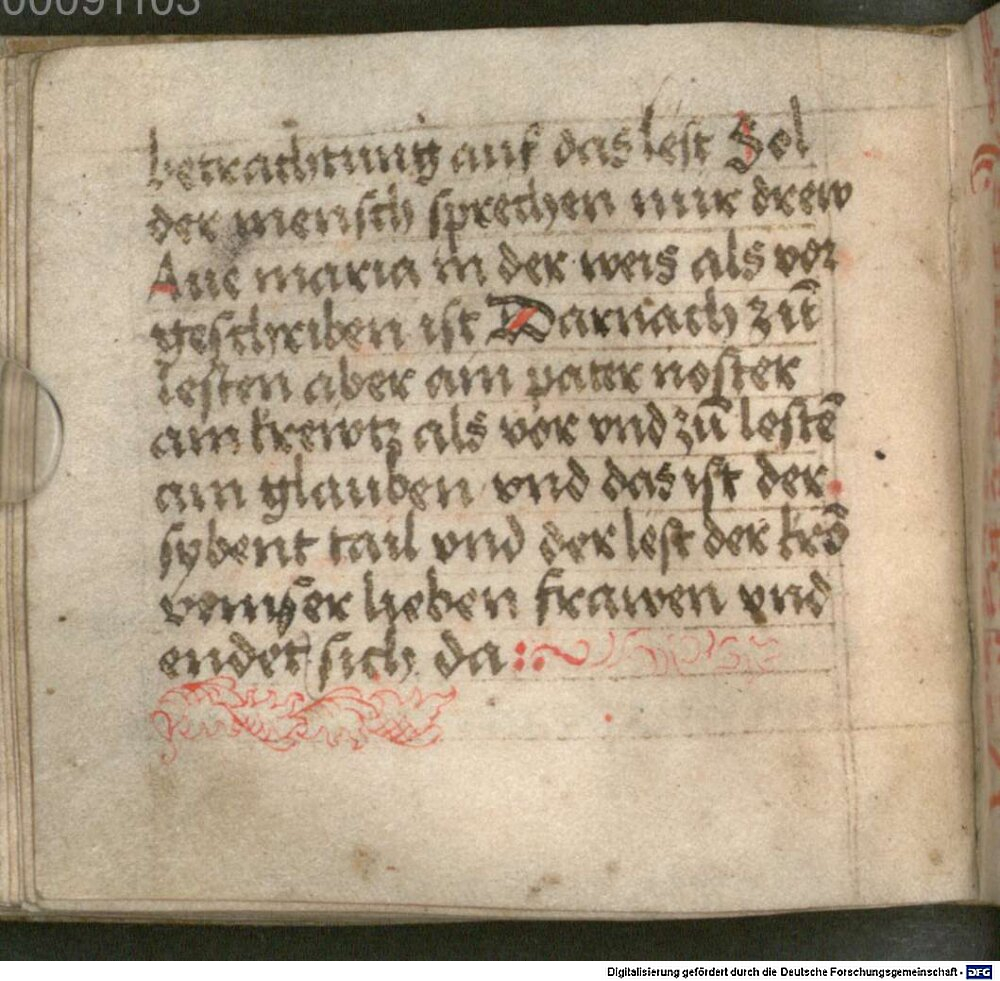 00091103
betrachtung auf das lest Sol
der mensch sprechen nur drew
Aue maria in der weis als vor
geschriben ist Darnach zū
lesten aber ain pater noster
ain krewtz als vor vnd zū lestē
ain glauben vnd das ist der
sybent tail vnd der lest der krō
vnnser lieben frawen vnd
endet sich da :~
Digitalisierung gefördert durch die Deutsche Forschungsgemeinschaft - DFG